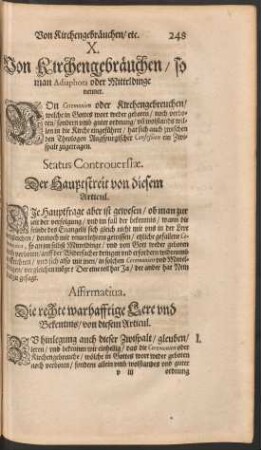 Von Kirchengebräuchen, etc. 248
X.
Von Kirchengebräuchen / so
man Adiaphora oder Mitteldinge
nennet.
VOn Ceremonien oder Kirchengebreuchen /
welche in Gottes wort weder geboten / noch verbo-
ten / sondern umb guter ordnung und wolstandts wil-
len in die Kirche eingeführt / hat sich auch zwischen
den Theologen Augspurgischer Confession ein Zwi-
spalt zugetragen.
Status Controuersiæ.
Der Hauptstreit von diesem
Articul.
DIe Hauptfrage aber ist gewesen / ob man zur
zeit der verfolgung / und im fall der bekentnis / wann die
feinde des Evangelii sich gleich nicht mit uns in der Lere
vergleichen / dennoch mit unverletztem gewissen / etliche gefallene Ceremonien,
so an im selbst Mitteldinge / und von Gott weder geboten
noch verboten / auff der Widersacher dringen und erfordern
wider auffrichten / und sich also mit inen / in solchen Ceremonien und Mittel-
dingen vergleichen möge? Der eine teil hat Ja / der ander hat Nein
darzu gesagt.
Affirmatiua.
Die rechte warhafftige Lere vnd
Bekentnis / von diesem Articul.
ZU hinlegung auch dieser Zwispalt / gleuben / I.
leren / und bekennen wir einhellig / das die Ceremonien oder
Kirchengebreuche / wölche in Gottes wort weder geboten
noch verboten / sondern allein umb wolstandes und guter
v iij ordnung